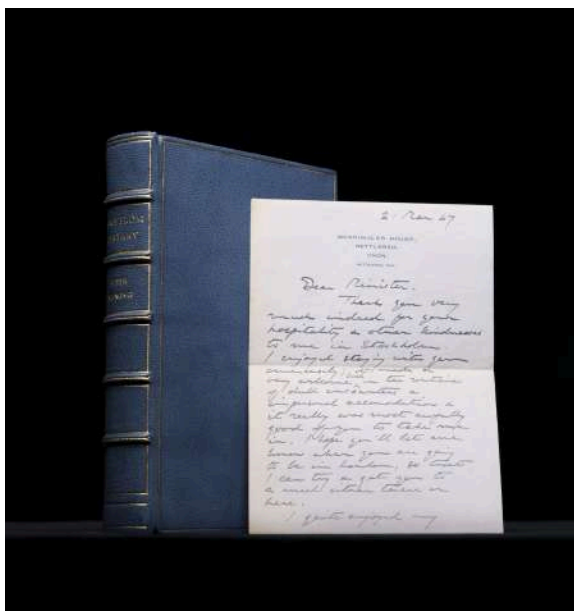 FROM
TARTARY
PETER
FLEMING
2. Mar 47
MERRIMOLES HOUSE,
NETTLEBED,
OXON.
Dear Minister.
Thank you very
much indeed for your
hospitality & other kindnesses
to me in Stockholm
I enjoyed staying with you
immensely; it made a
very welcome in the routine
of dull encounters &
impersonal accomodation &
it really was most awfully
good of you to take me
in. I hope you'll let me
know when you are going
to be in London, so that
I can try & get you to
a meal either there or
here.
I quite enjoyed my